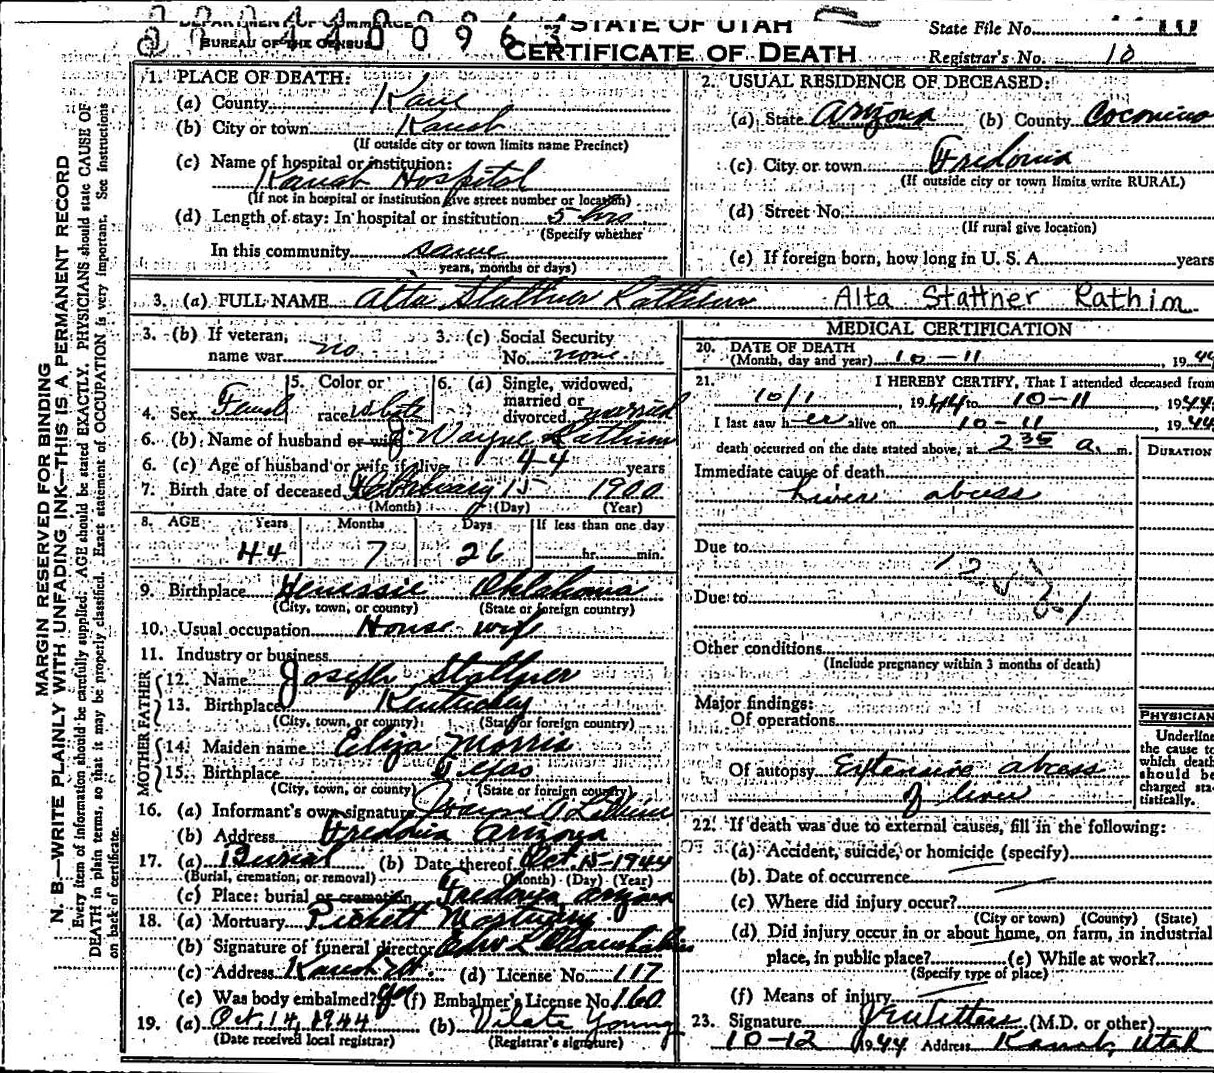 DEPARTMENT OF COMMERCE
BUREAU OF THE CENSUS
STATE OF UTAH
CERTIFICATE OF DEATH
State File No.
Registrar's No. 10
MARGIN RESERVED FOR BINDING
N. B.—WRITE PLAINLY WITH UNFADING INK—THIS IS A PERMANENT RECORD
Every item of information should be carefully supplied. AGE should be stated EXACTLY. PHYSICIANS should state CAUSE OF
DEATH in plain terms, so that it may be properly classified. Exact statement of OCCUPATION is very important. See instructions
on back of certificate.
1. PLACE OF DEATH:
(a) County Kane
(b) City or town Kanab
(If outside city or town limits name Precinct)
(c) Name of hospital or institution:
Kanab Hospital
(If not in hospital or institution give street number or location)
(d) Length of stay: In hospital or institution 5 hrs
(Specify whether
In this community same
years, months or days)
2. USUAL RESIDENCE OF DECEASED:
(a) State Arizona (b) County Coconino
(c) City or town Fredonia
(If outside city or town limits write RURAL)
(d) Street No.
(If rural give location)
(e) If foreign born, how long in U. S. A. years
3. (a) FULL NAME Alta Stattner Rathim Alta Stattner Rathim
3. (b) If veteran, name war no
3. (c) Social Security No. none
4. Sex Female
5. Color or race White
6. (a) Single, widowed, married or divorced married
6. (b) Name of husband or wife J. Wayne
6. (c) Age of husband or wife if alive 44 years
7. Birth date of deceased February 15 1900
(Month) (Day) (Year)
8. AGE Years Months Days If less than one day
44 7 26 hr. min.
9. Birthplace Hennssie Oklahoma
(City, town, or county) (State or foreign country)
10. Usual occupation House wife
11. Industry or business
FATHER
12. Name Joseph Stattner
13. Birthplace Kentuckey
(City, town, or county) (State or foreign country)
MOTHER
14. Maiden name Eliza Morris
15. Birthplace Texas
(City, town, or county) (State or foreign country)
16. (a) Informant's own signature
(b) Address Fredonia Arizona
17. (a) Burial (b) Date thereof Oct. 15-1944
(Burial, cremation, or removal) (Month) (Day) (Year)
(c) Place: burial or cremation Fredonia Arizona
18. (a) Mortuary Mortuary
(b) Signature of funeral director
(c) Address Kanab Ut. (d) License No. 117
(e) Was body embalmed? yes (f) Embalmer's License No. 160
19. (a) Oct. 14, 1944 (b) Vilate Young
(Date received local registrar) (Registrar's signature)
MEDICAL CERTIFICATION
20. DATE OF DEATH
(Month, day and year) 10-11, 1944
21. I HEREBY CERTIFY, That I attended deceased from
10/1, 1944 to 10-11, 1944
I last saw her alive on 10-11, 1944
death occurred on the date stated above, at 2 35 a. m.
DURATION
Immediate cause of death
Liver abcess
Due to
Due to
Other conditions
(Include pregnancy within 3 months of death)
Major findings:
Of operations
Of autopsy Extensive abcess
of liver
PHYSICIAN
Underline
the cause to
which death
should be
charged sta-
tistically.
22. If death was due to external causes, fill in the following:
(a) Accident, suicide, or homicide (specify)
(b) Date of occurrence
(c) Where did injury occur?
(City or town) (County) (State)
(d) Did injury occur in or about home, on farm, in industrial
place, in public place? (e) While at work?
(Specify type of place)
(f) Means of injury
23. Signature (M.D. or other)
10-12 1944 Address Kanab, Utah